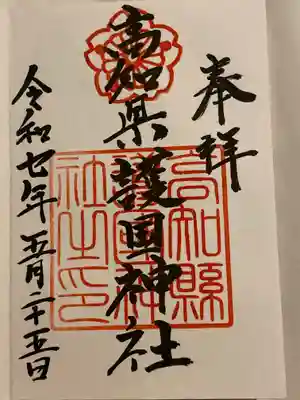 奉祥
高知県護国神社
高知縣
護國神
社之印
令和七年五月二十五日